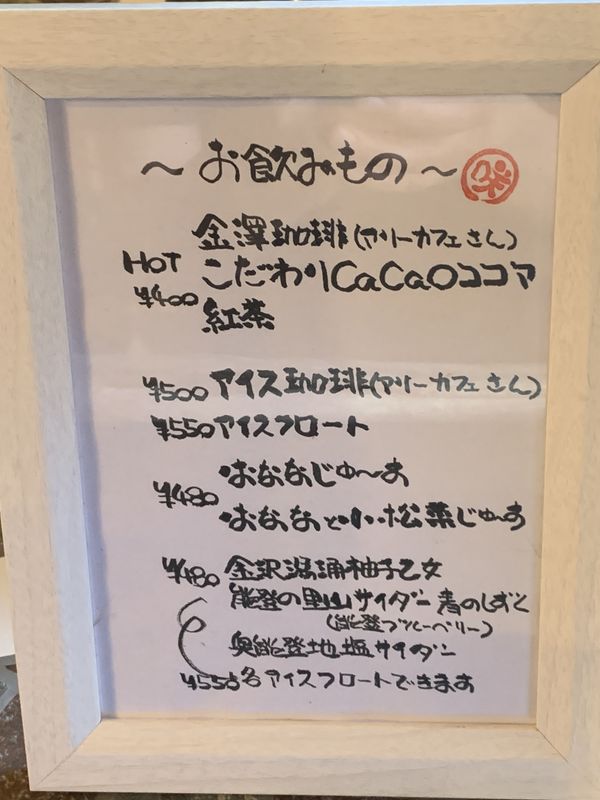 〜お飲みもの〜
金澤珈琲(アリーカフェさん)
HOT こだわりCaCaOココア
¥400 紅茶
¥500 アイス珈琲(アリーカフェさん)
¥550 アイスフロート
・ばななじゅ〜す
¥480
・ばななと小松菜じゅ〜す
¥480 金沢湯涌柚子乙女
能登の里山サイダー 青のしずく
(能登ブルーベリー)
奥能登地塩サイダー
¥550 各アイスフロートできます